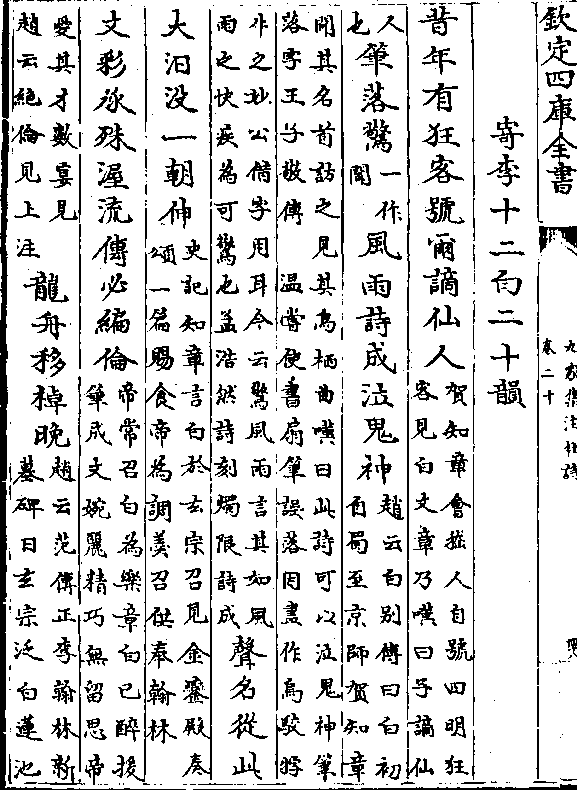 欽定四庫全書
九家集注杜詩
卷二十
寄李十二白二十韻
昔年有狂客號爾謫仙人
賀知章會稽人自號四明狂
客見白文章乃嘆曰子謫仙
人
也
筆落驚
一作
聞
風雨詩成泣鬼神
趙云白別傳曰白初
自蜀至京師賀知章
聞其名首訪之見其烏栖曲嘆曰此詩可以泣鬼神筆
落字王子敬傳溫嘗使書扇筆誤落因畫作烏駮牸
牛之妙公借字用耳今云驚風雨言其如風
雨之快疾為可驚也孟浩然詩刻燭限詩成
聲名從此
大汨没一朝伸
史記知章言白於玄宗召見金鑾殿奏
頌一篇賜食帝為調羹召供奉翰林
文彩承殊渥流傳必絶倫
帝常召白為樂章白已醉援
筆成文婉麗精巧無留思帝
愛其才數宴見
趙云絶倫見上注
龍舟移棹晚
趙云范傳正李翰林新
墓碑曰玄宗泛白蓮池